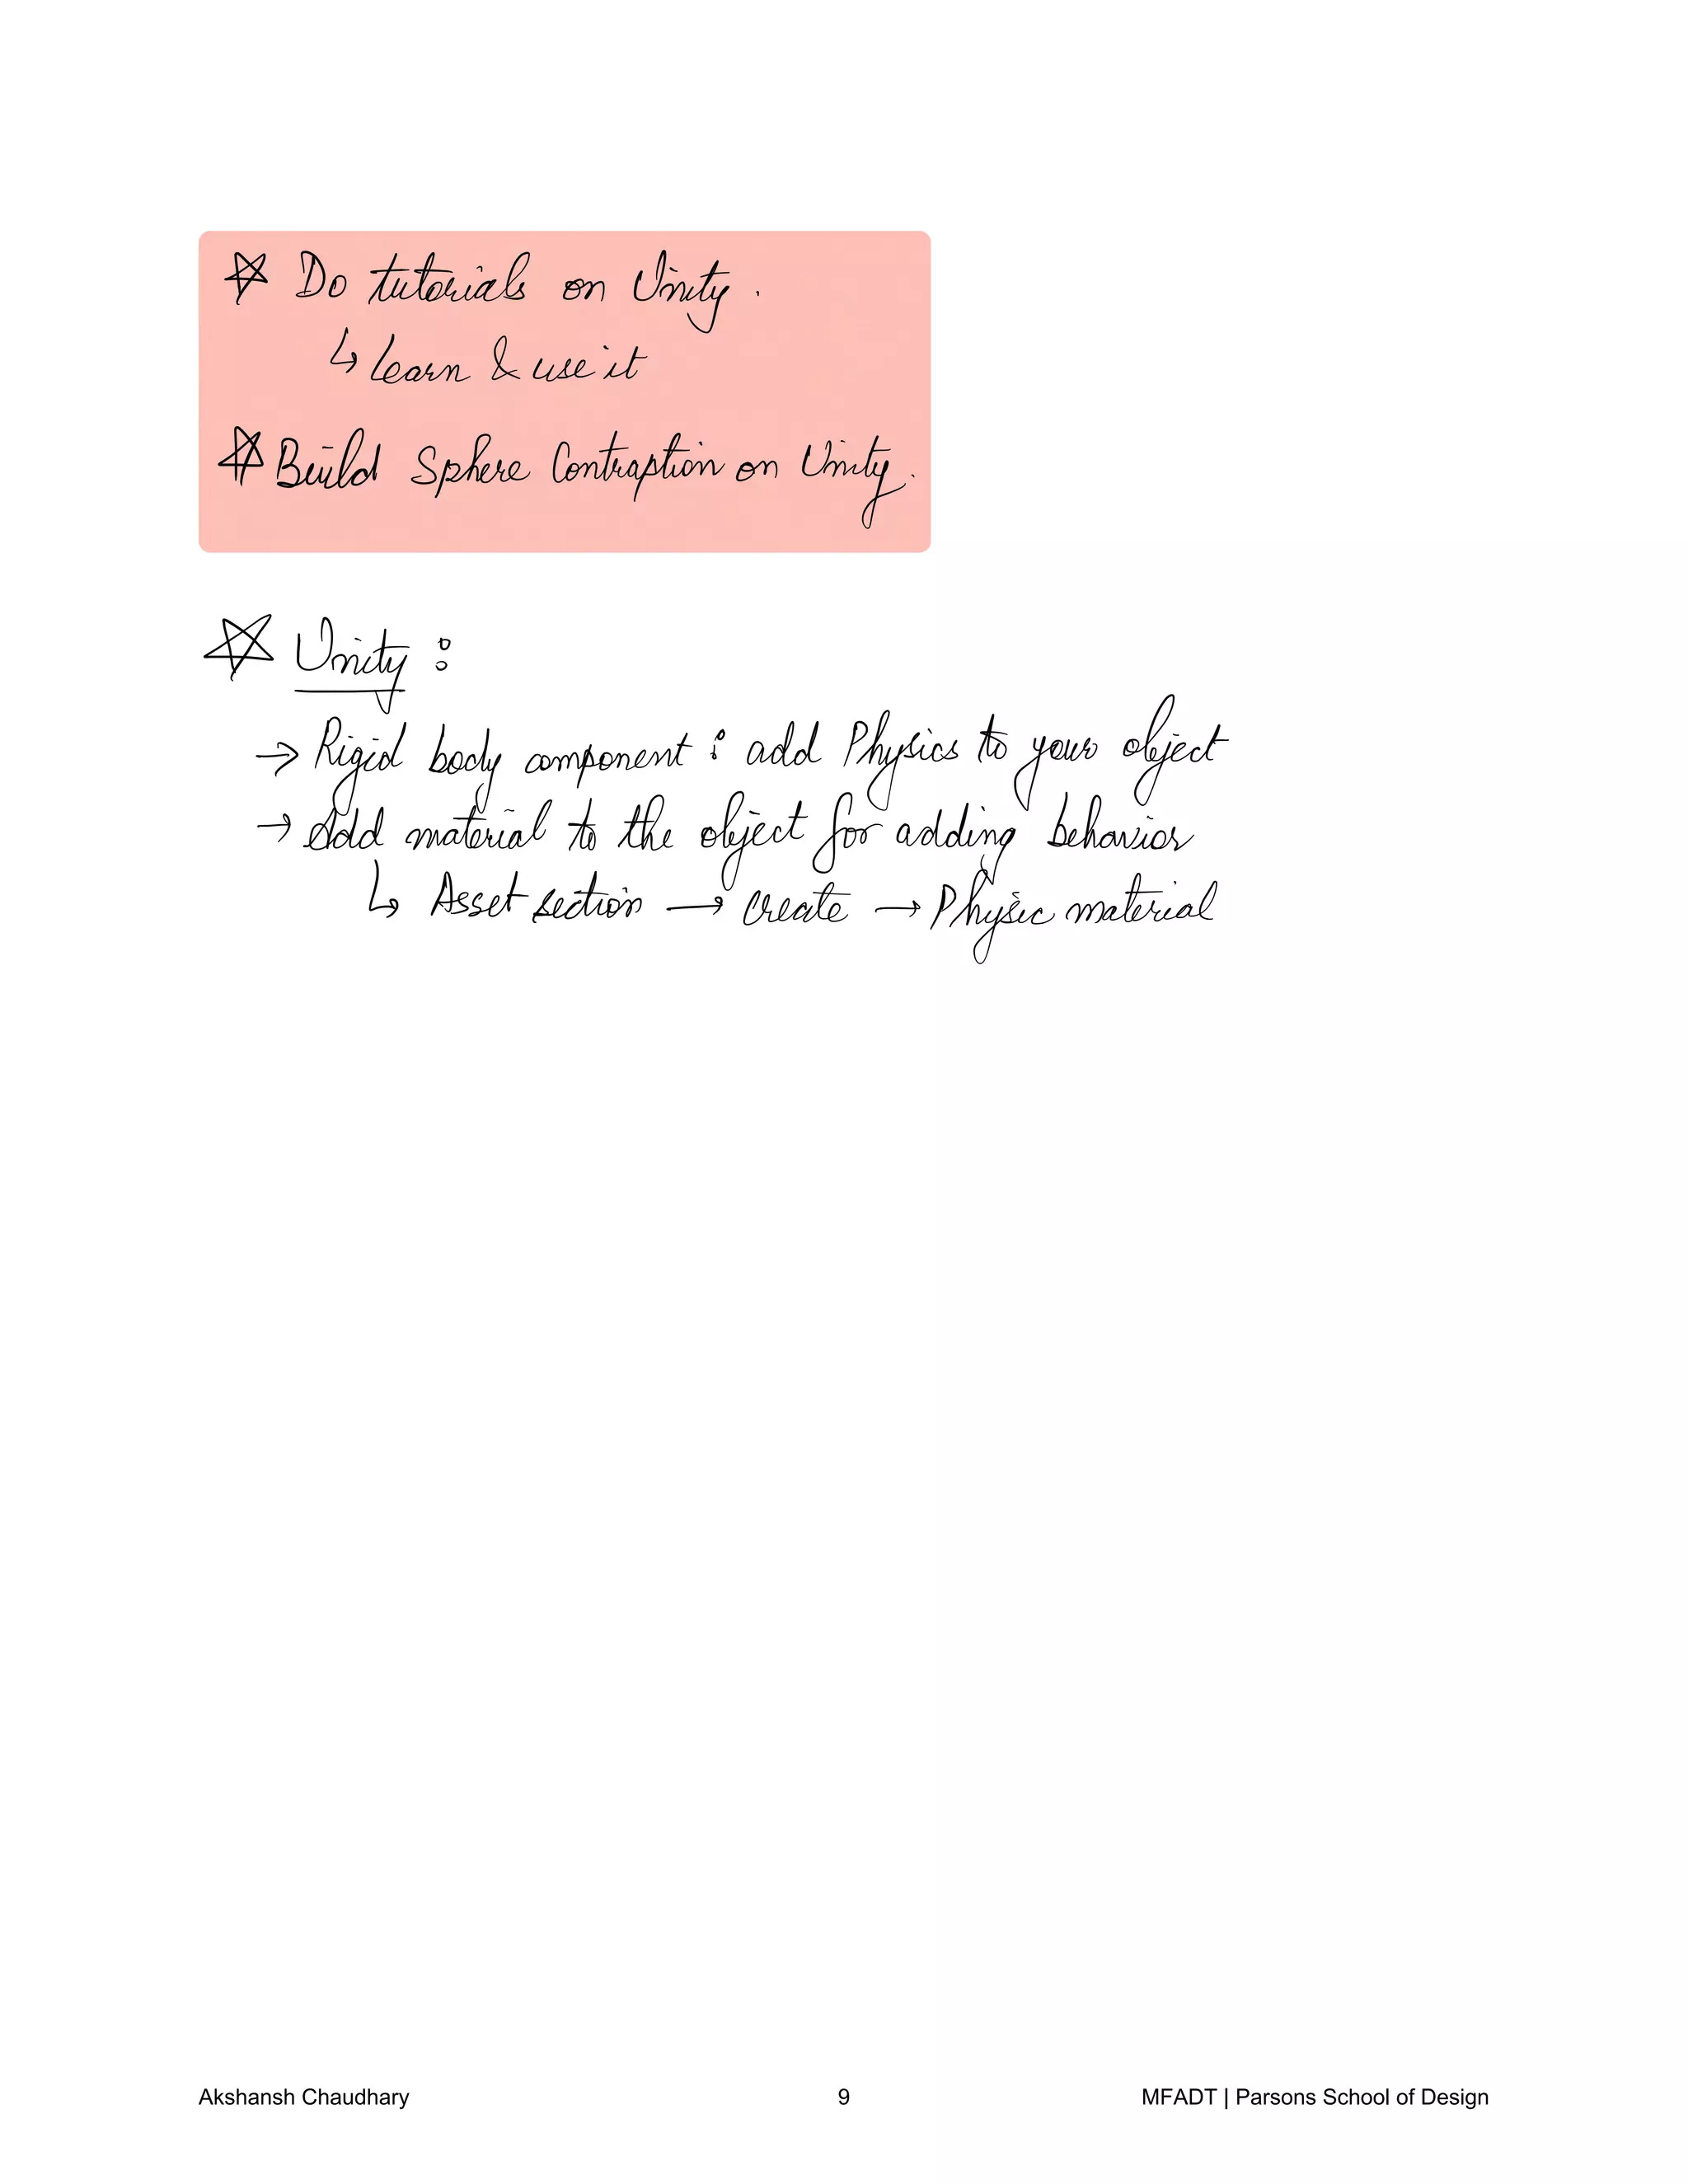 ☆ Do tutorials on Unity.
↳ Learn & use it
☆ Build Sphere Contraption on Unity.
☆ Unity:
→ Rigid body component: add Physics to your object
→ Add material to the object for adding behavior
↳ Asset section → Create → Physic material
Akshansh Chaudhary 9 MFADT | Parsons School of Design